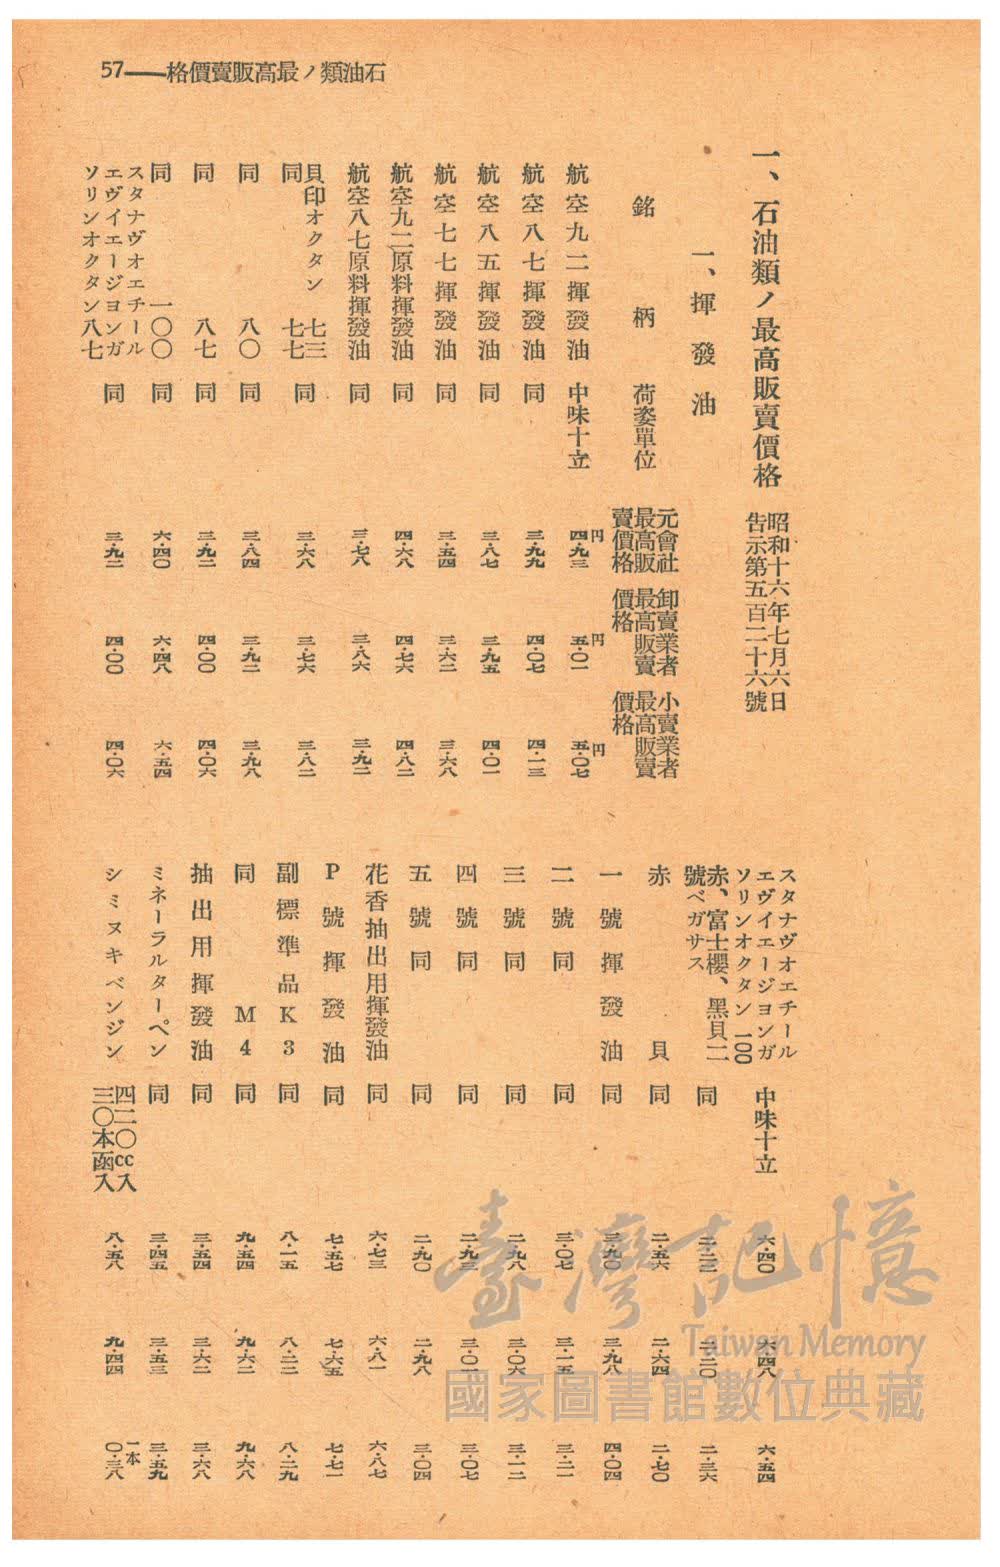 石油類ノ最高販賣價格——57
一、石油類ノ最高販賣價格
昭和十六年七月六日
告示第五百二十六號
一、揮發油
銘柄 荷姿單位 元會社最高販賣價格 卸賣業者最高販賣價格 小賣業者最高販賣價格
航空九二揮發油 中味十立 円四・九三 円五・〇一 円五・〇七
航空八七揮發油 同 三・九九 四・〇七 四・一三
航空八五揮發油 同 三・八七 三・九五 四・〇一
航空七七揮發油 同 三・五四 三・六二 三・六八
航空九二原料揮發油 同 四・六八 四・七六 四・八二
航空八七原料揮發油 同 三・七八 三・八六 三・九二
貝印オクタン 七三
同 七七 同 三・六八 三・七六 三・八二
同 八〇 同 三・八四 三・九二 三・九八
同 八七 同 三・九二 四・〇〇 四・〇六
同 一〇〇 同 六・四〇 六・四八 六・五四
スタナヴオエチール
エヴイエージヨンガ
ソリンオクタン八七 同 三・九二 四・〇〇 四・〇六
スタナヴオエチール
エヴイエージヨンガ
ソリンオクタン 100 中味十立 六・四〇 六・四八 六・五四
赤、富士櫻、黑貝二
號ベガサス 同 二・二二 二・三〇 二・三六
赤貝 同 二・五六 二・六四 二・七〇
一號揮發油 同 三・九〇 三・九八 四・〇四
二號同 同 三・〇七 三・一五 三・二一
三號同 同 二・九八 三・〇六 三・一二
四號同 同 二・九三 三・〇一 三・〇七
五號同 同 二・九〇 二・九八 三・〇四
花香抽出用揮發油 同 六・七三 六・八一 六・八七
P號揮發油 同 七・五七 七・六五 七・七一
副標準品K3 同 八・一五 八・二三 八・二九
同 M4 同 九・五四 九・六二 九・六八
抽出用揮發油 同 三・五四 三・六二 三・六八
ミネーラルターペン 同 三・四五 三・五三 三・五九
シミヌキベンジン 四二〇cc入三〇本函入 八・五八 九・四四 一本〇・三八
臺灣記憶
Taiwan Memory
國家圖書館數位典藏